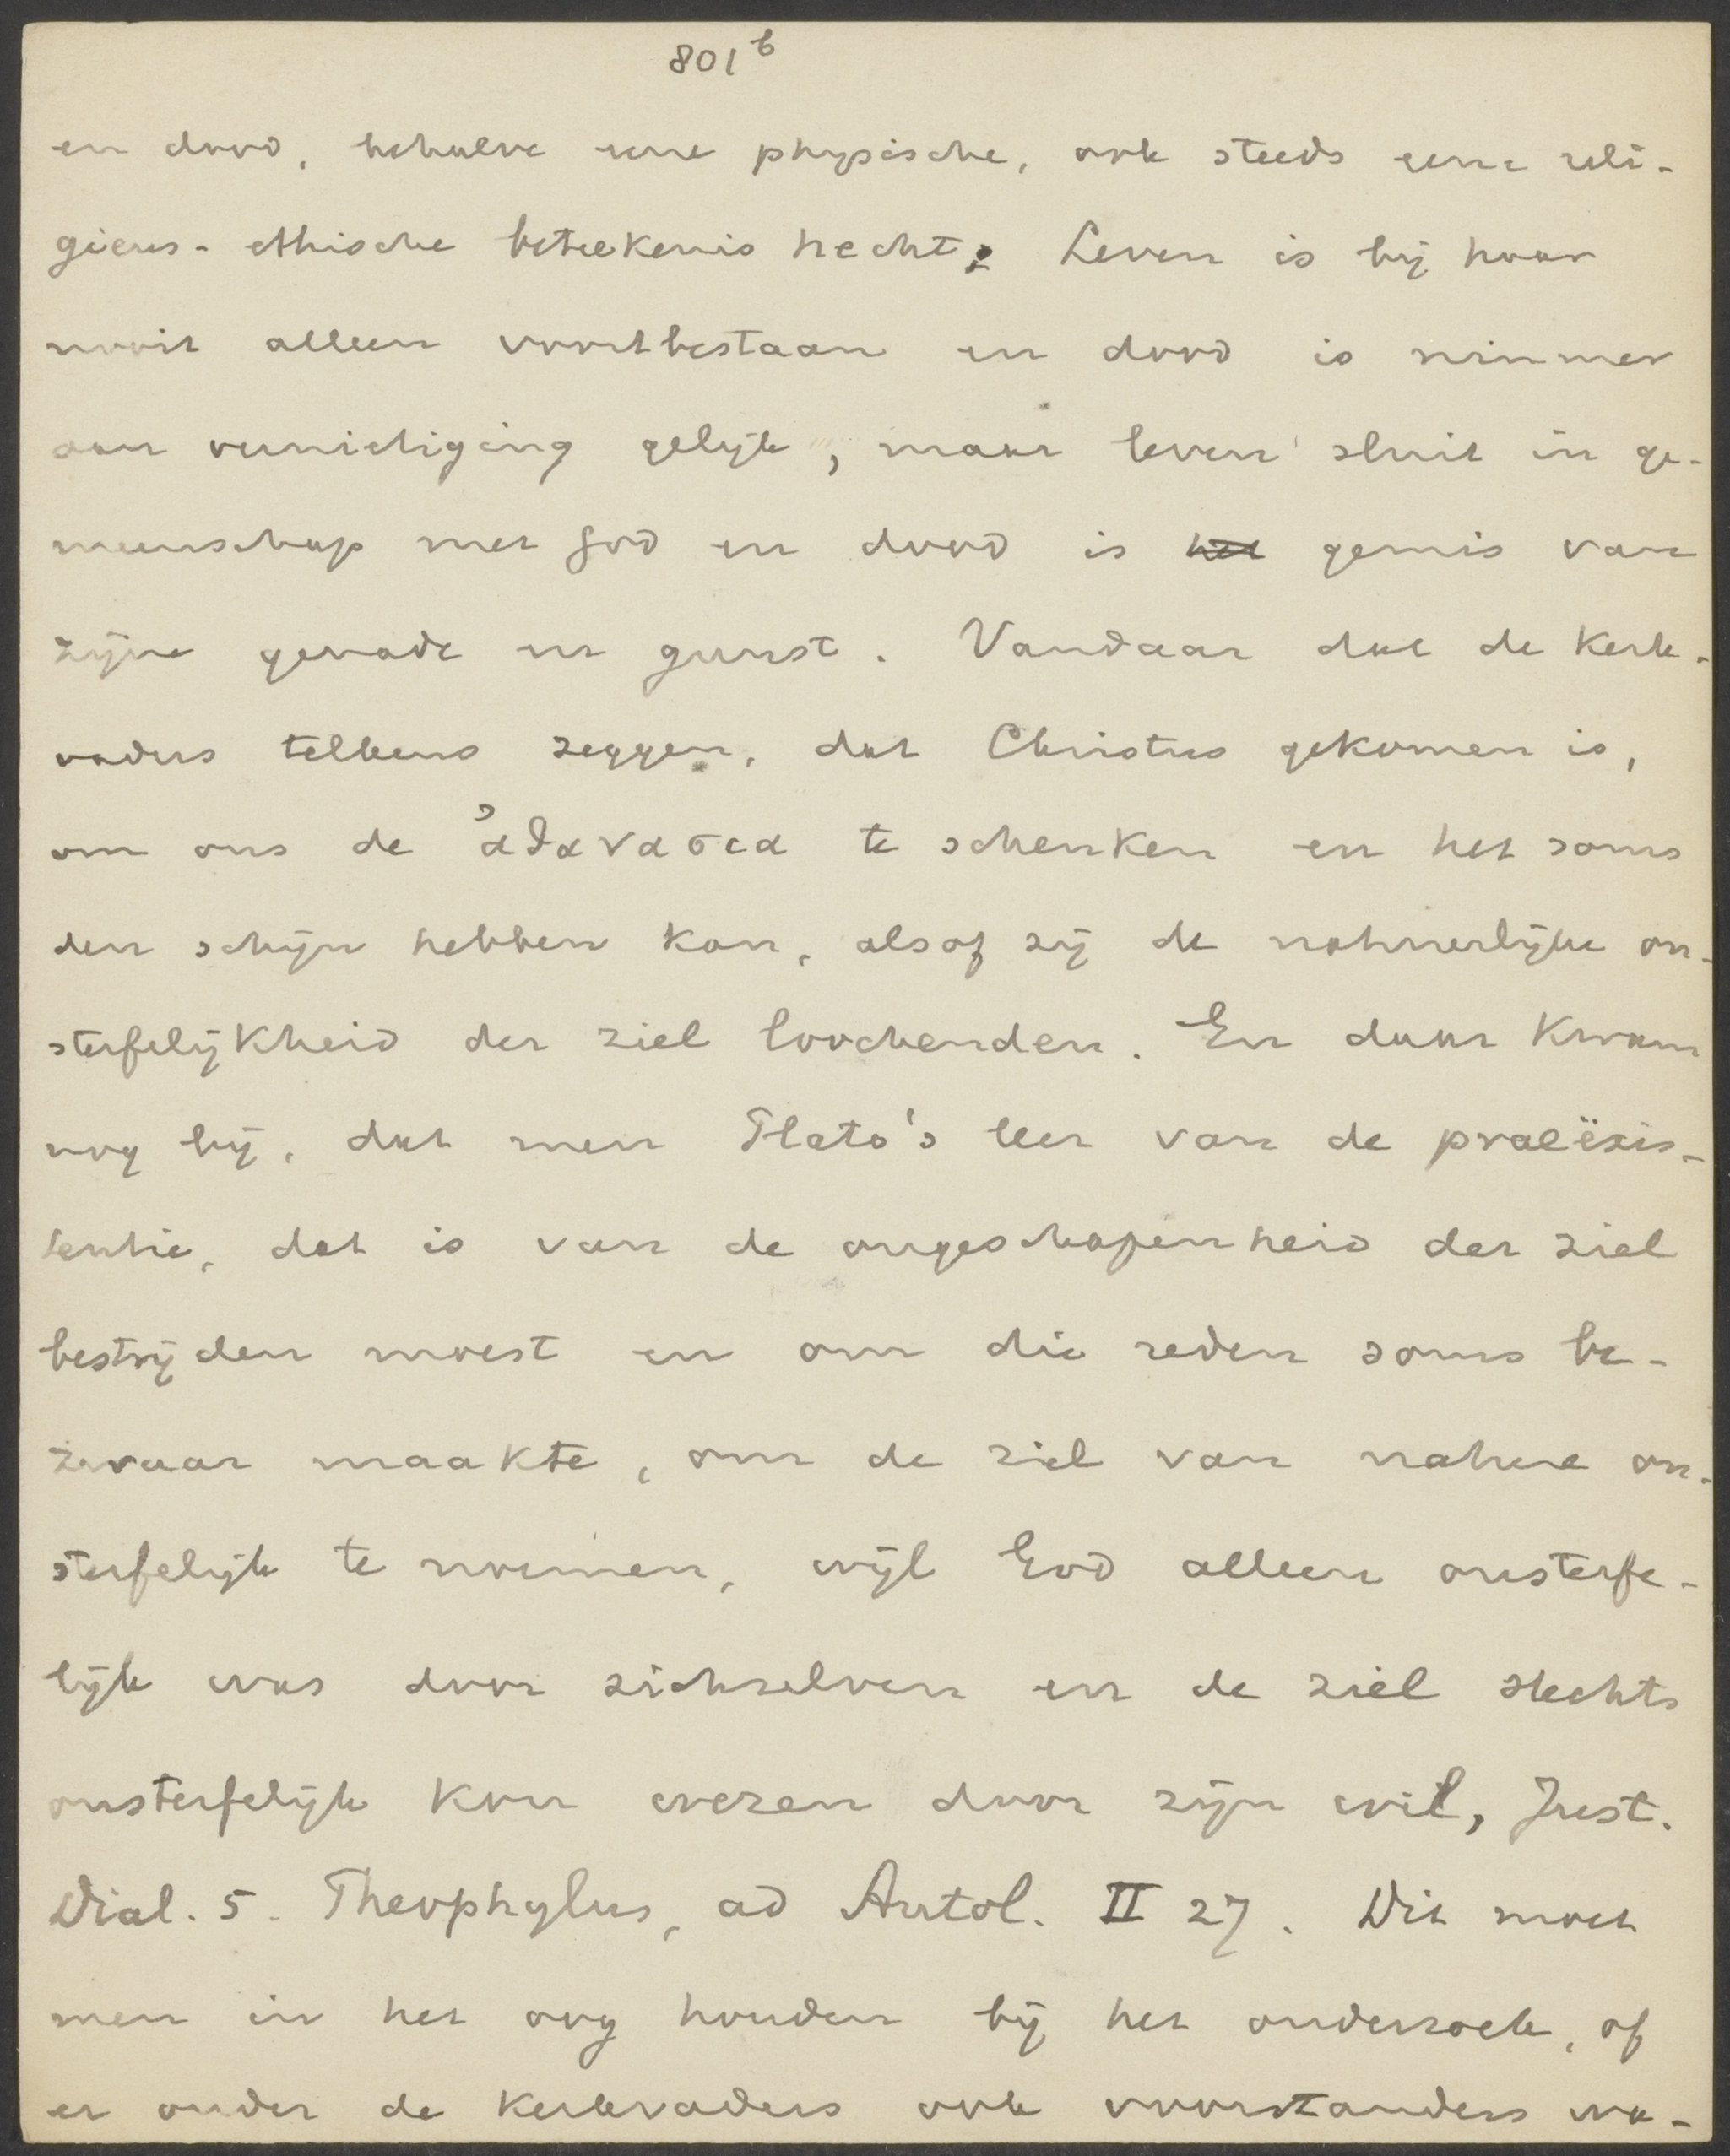 801b
en dood, behalve eene physische, ook steeds eene reli-
gieus-ethische beteekenis hecht; Leven is bij haar
nooit alleen voortbestaan en dood is nimmer
aan vernietiging gelijk, maar leven sluit in ge-
meenschap met God en dood is het gemis van
zijne genade en gunst. Vandaar dat de kerk-
vaders telkens zeggen, dat Christus gekomen is,
om ons de ἀθανασια te schenken en het soms
den schijn hebben kan, alsof zij de natuurlijke on-
sterfelijkheid der ziel loochenden. En daar kwam
nog bij, dat men Plato's leer van de praeëxis-
tentie, dat is van de ongeschapenheid der ziel
bestrijden moest en om die reden soms be-
zwaar maakte, om de ziel van nature on-
sterfelijk te noemen, wijl God alleen onsterfe-
lijk was door zichzelven en de ziel slechts
onsterfelijk kon wezen door zijn wil, Just.
Dial. 5. Theophylus, ad Autol. II 27. Dit moet
men in het oog houden bij het onderzoek, of
er onder de kerkvaders ook voorstanders wa-